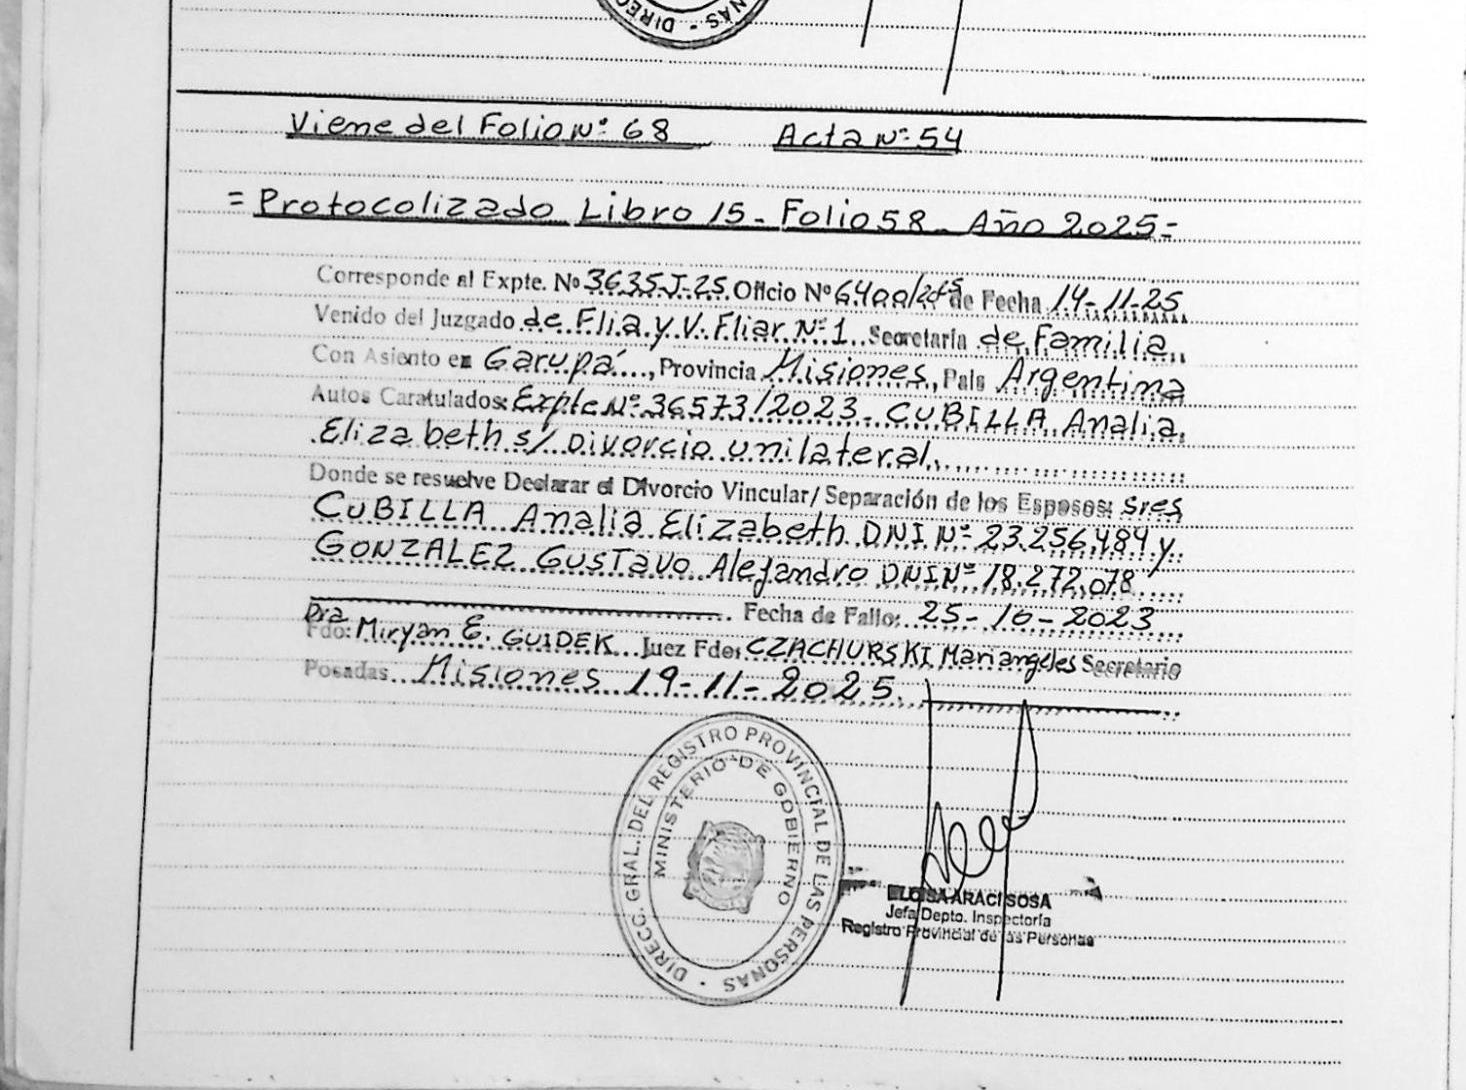 DIRECC · NAS
Viene del Folio Nº 68 Acta Nº 54
= Protocolizado Libro 15 - Folio 58 - Año 2025 =
Corresponde al Expte. Nº 3635-J-25 Oficio Nº 6400/245 de Fecha 14-11-25
Venido del Juzgado de Flia y V. Fliar Nº 1 Secretaría de Familia
Con Asiento en Garupá, Provincia Misiones, País Argentina
Autos Caratulados: Expte Nº 36573/2023 - CUBILLA Analia
Elizabeth s/ Divorcio unilateral
Donde se resuelve Declarar el Divorcio Vincular/ Separación de los Esposos: Sres
CUBILLA Analia Elizabeth DNI Nº 23.256.484 y
GONZALEZ GUSTavo Alejandro DNI Nº 18.272.078
Fecha de Fallo: 25-10-2023
Dra
Fdo: Miryan E. GUIDEK Juez Fdo: CZACHURSKI Mariangeles Secretario
Posadas Misiones 19-11-2025
DIRECC. GRAL. DEL REGISTRO PROVINCIAL DE LAS PERSONAS
MINISTERIO DE GOBIERNO
ELOISA ARACI SOSA
Jefa Depto. Inspectoría
Registro Provincial de las Personas